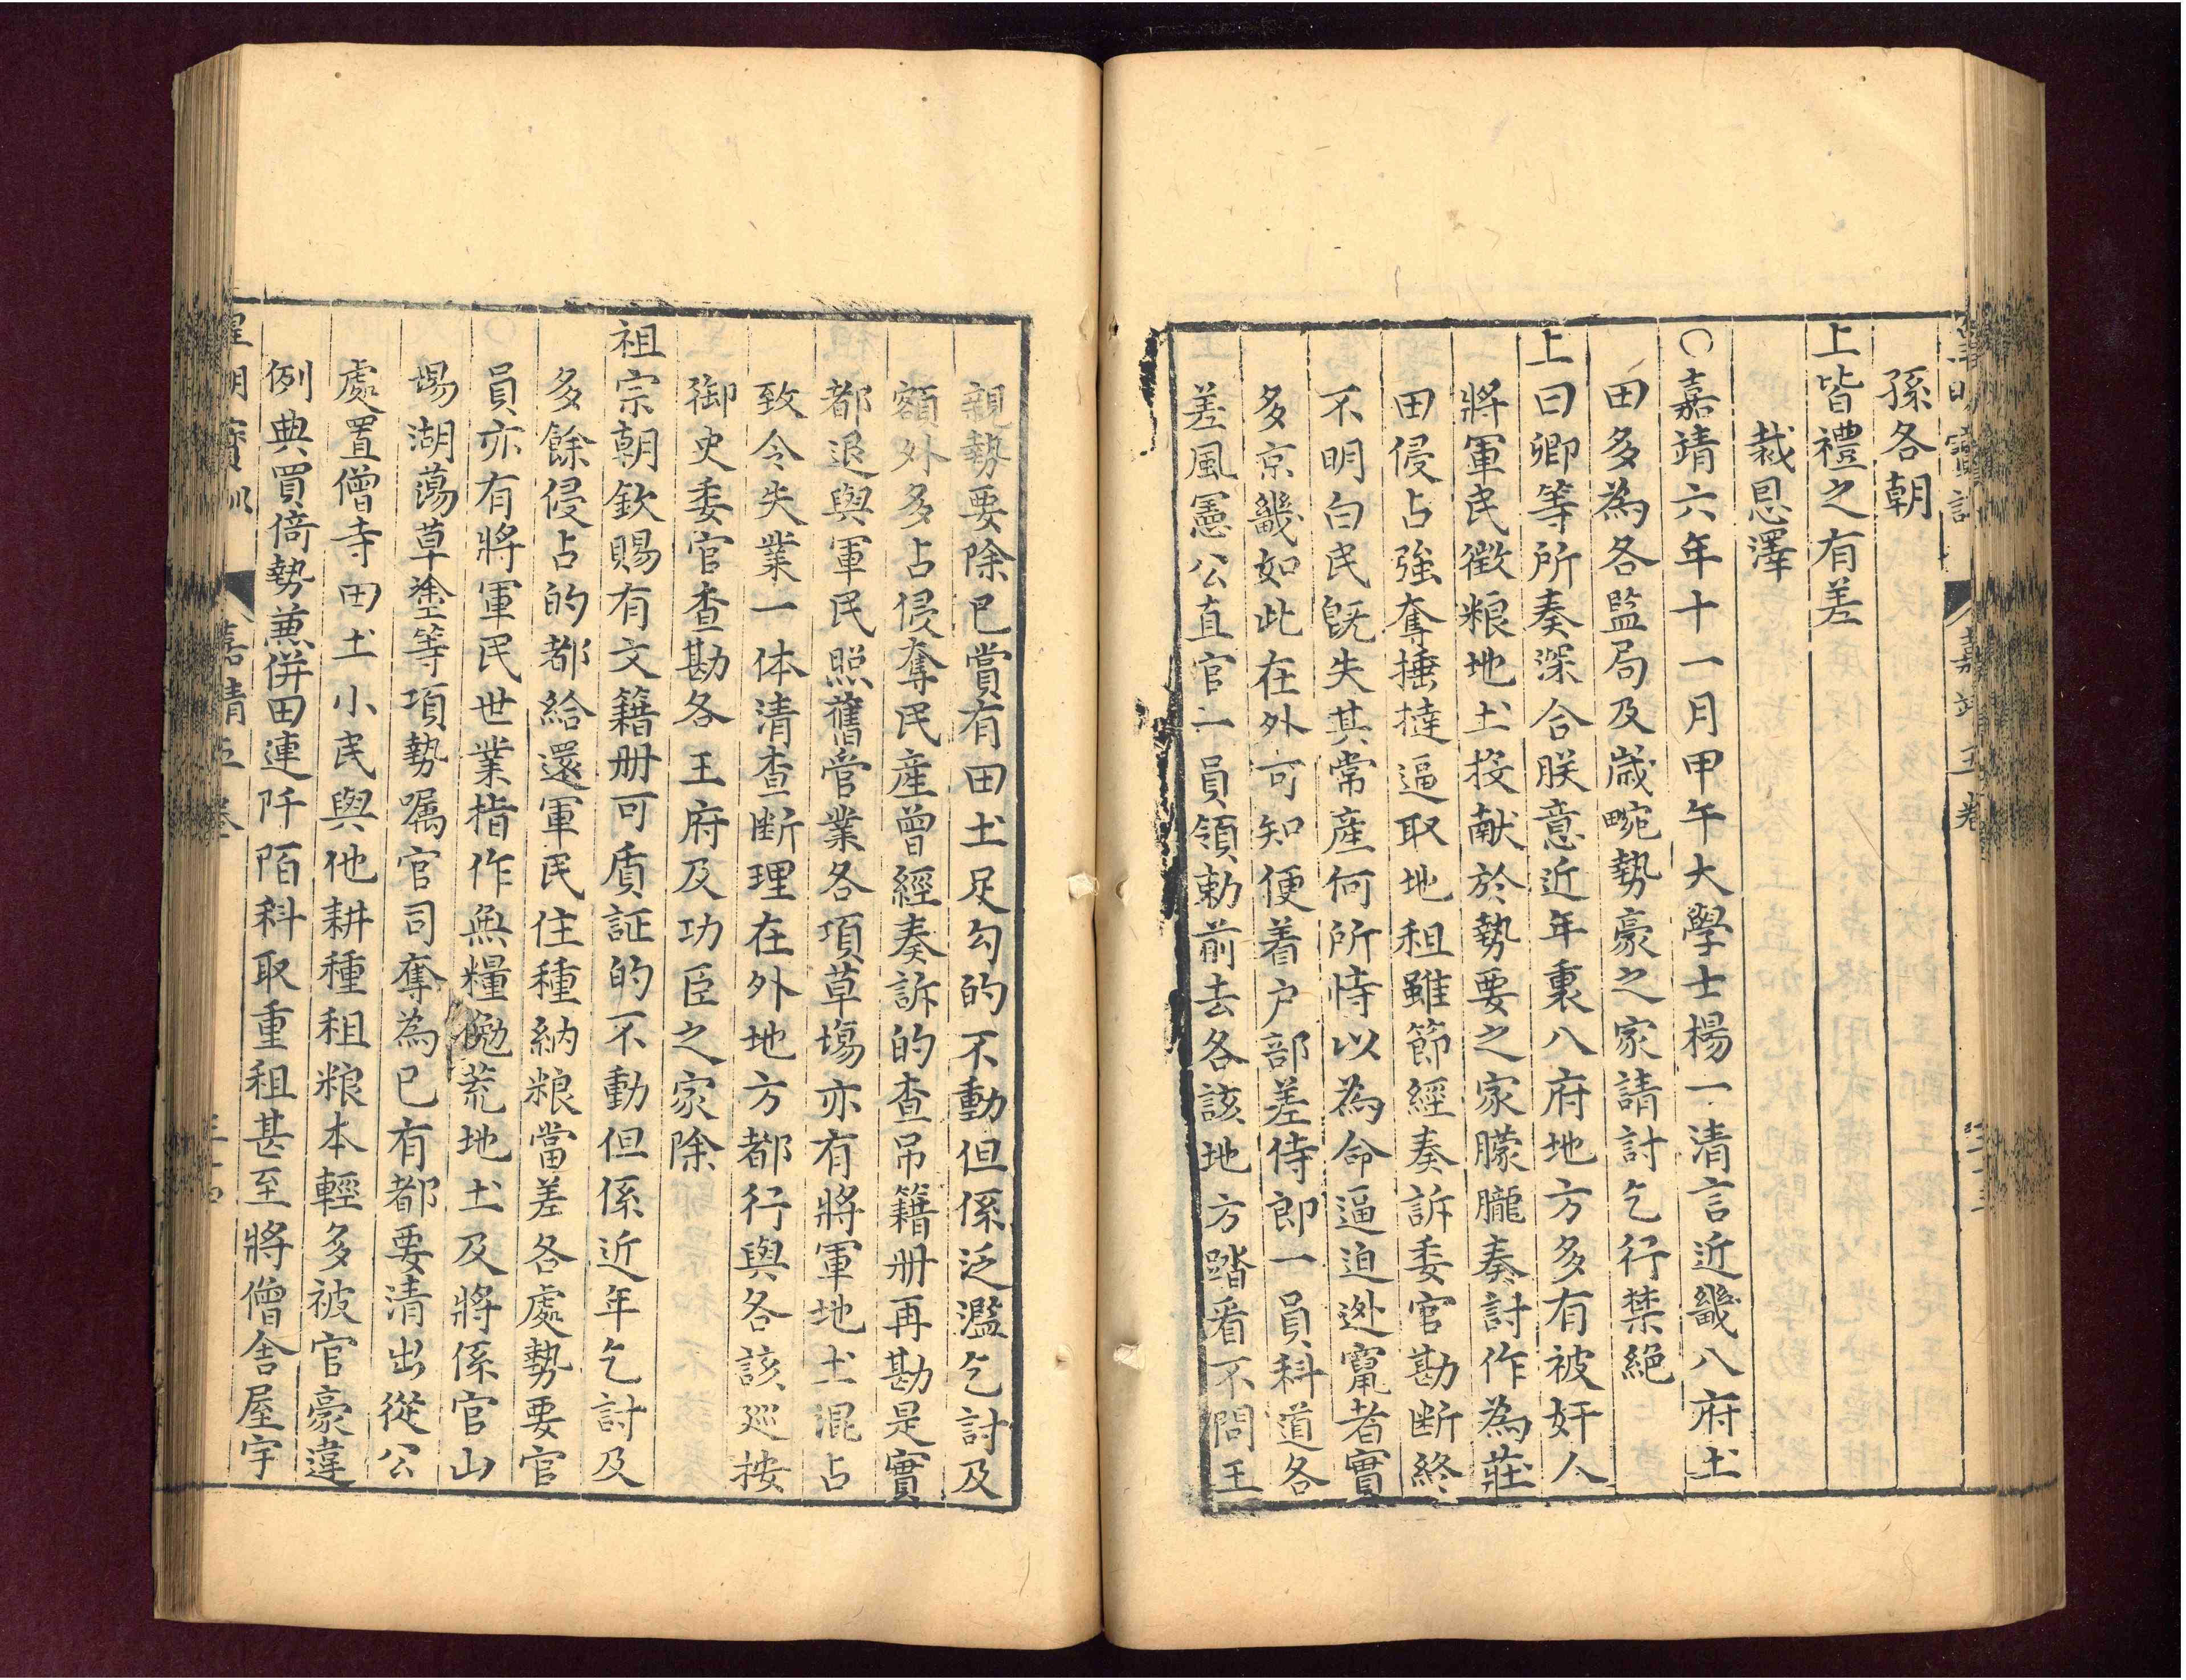 皇明寶訓 嘉靖五卷 三十三
孫各朝
上皆禮之有差
裁恩澤
〇嘉靖六年十一月甲午大學士楊一清言近畿八府土
田多為各監局及歲畹勢豪之家請討乞行禁絕
上曰卿等所奏深合朕意近年裏八府地方多有被奸人
將軍民徵粮地土投献於勢要之家朦朧奏討作為莊
田侵占強奪捶撻逼取地租雖節經奏訴委官勘断終
不明白民既失其常產何所恃以為命逼迫迯竄者實
多京畿如此在外可知便着户部差侍郎一員科道各
差風憲公直官一員領勅前去各該地方踏看不問王
親勢要除已賞有田土足勾的不動但係泛濫乞討及
額外多占侵奪民產曾經奏訴的查吊籍册再勘是實
都退與軍民照舊營業各項草塲亦有將軍地土混占
致令失業一体清查断理在外地方都行與各該廵按
御史委官查勘各王府及功臣之家除
祖宗朝欽賜有文籍册可質証的不動但係近年乞討及
多餘侵占的都給還軍民住種納粮當差各處勢要官
員亦有將軍民世業指作無糧抛荒地土及將係官山
塲湖蕩草塗等項勢嘱官司奪為已有都要清出從公
處置僧寺田土小民與他耕種租粮本輕多被官豪違
例典買倚勢兼併田連阡陌科取重租甚至將僧舍屋宇
皇明寶訓 嘉靖五卷 三十四